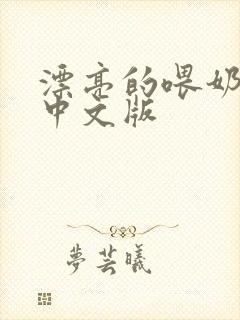 漂亮的喂奶
中文版
梦芸曦